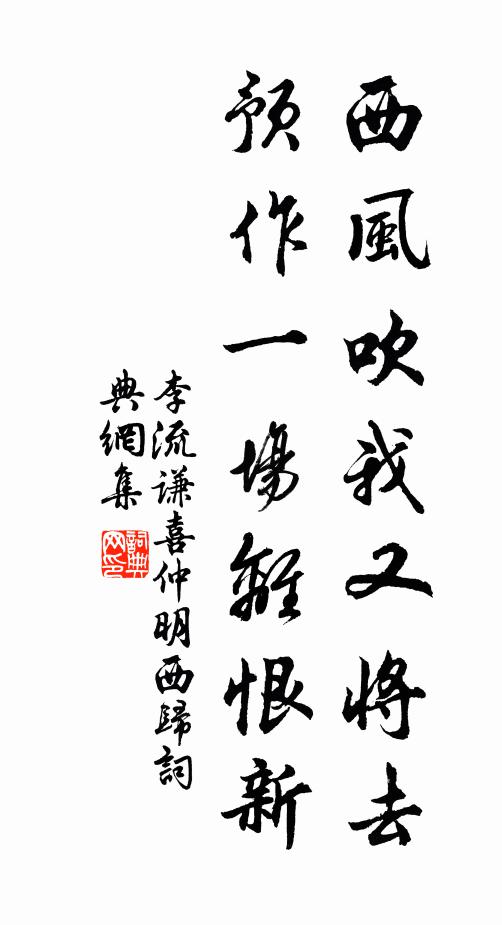 西風吹我又將去
預作一場離恨新
李流謙喜仲明西歸詞
典網集
詞典
网印